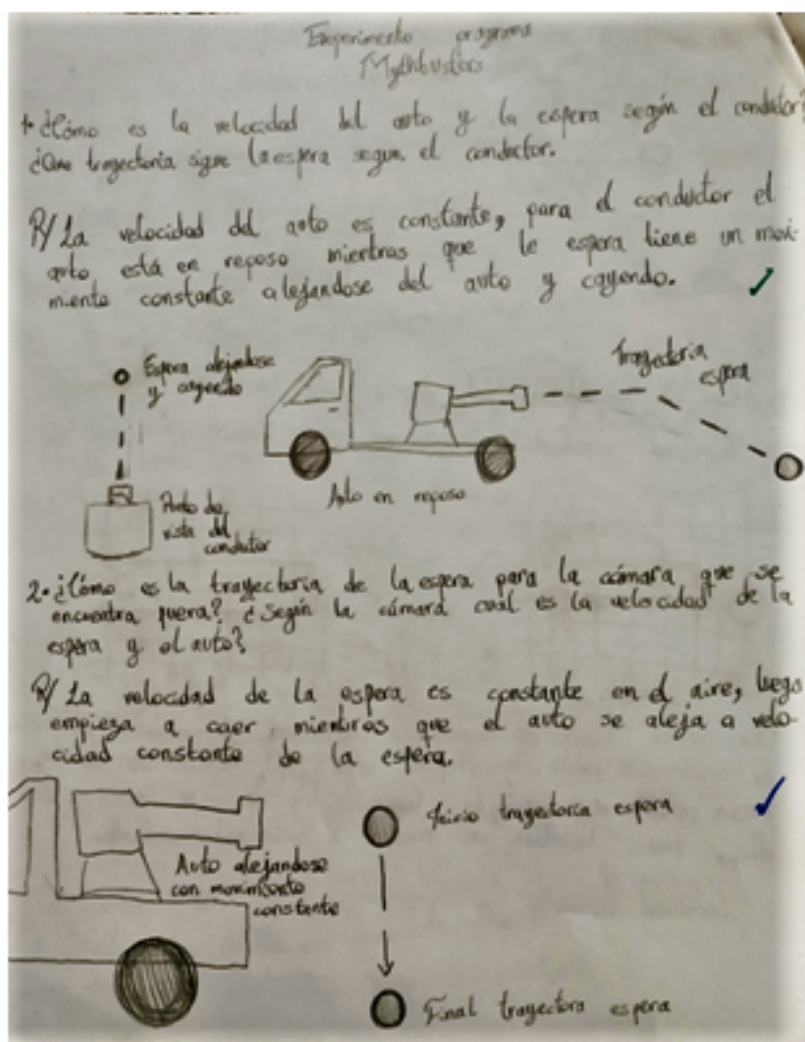 Experimento programa
Mythbusters
1. ¿Cómo es la velocidad del auto y la espera según el conductor?
¿Que trayectoria sigue la espera segun el conductor.
R/ La velocidad del auto es constante, para el conductor el
auto está en reposo mientras que le espera tiene un movi-
miento constante alejandose del auto y cayendo.
Espera alejandose
y cayendo
Trayectoria
espera
Auto en reposo
Punto de
vista del
conductor
2. ¿Cómo es la trayectoria de la espera para la cámara que se
encuentra fuera? ¿Según la cámara cual es la velocidad de la
espera y el auto?
R/ La velocidad de la espera es constante en el aire, luego
empieza a caer, mientras que el auto se aleja a velo-
cidad constante de la espera.
Inicio trayectoria espera
Auto alejandose
con movimiento
constante
Final trayectora espera